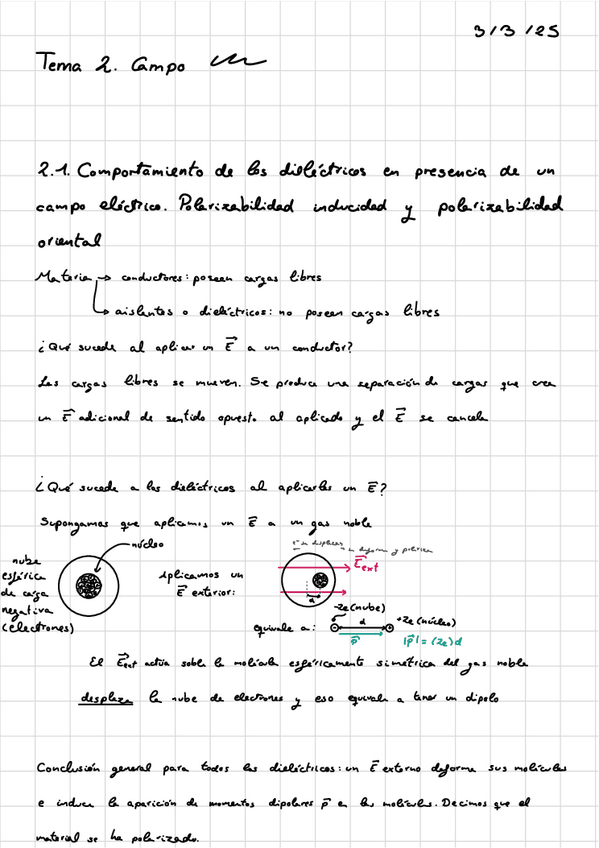 3/3/25
Tema 2. Campo
2.1. Comportamiento de los dieléctricos en presencia de un
campo eléctrico. Polarizabilidad inducidad y polarizabilidad
oriental
Materia → conductores: poseen cargas libres
→ aislantes o dieléctricos: no poseen cargas libres
¿Qué sucede al aplicar un E⃗ a un conductor?
Las cargas libres se mueven. Se produce una separación de cargas que crea
un E⃗ adicional de sentido opuesto al aplicado y el E⃗ se cancela
¿Qué sucede a los dieléctricos al aplicarles un E⃗?
Supongamos que aplicamos un E⃗ a un gas noble
núcleo
nube
esférica
de carga
negativa
(electrones)
Aplicamos un
E⃗ exterior:
E⃗ext
d
equivale a:
-Ze (nube)
d
+Ze (núcleo)
p⃗
|p⃗| = (Ze)d
El E⃗ext actúa sobre la molécula esféricamente simétrica del gas noble
desplaza la nube de electrones y eso equivale a tener un dipolo
Conclusión general para todos los dieléctricos: un E⃗ externo deforma sus moléculas
e induce la aparición de momentos dipolares p⃗ en las moléculas. Decimos que el
material se ha polarizado.